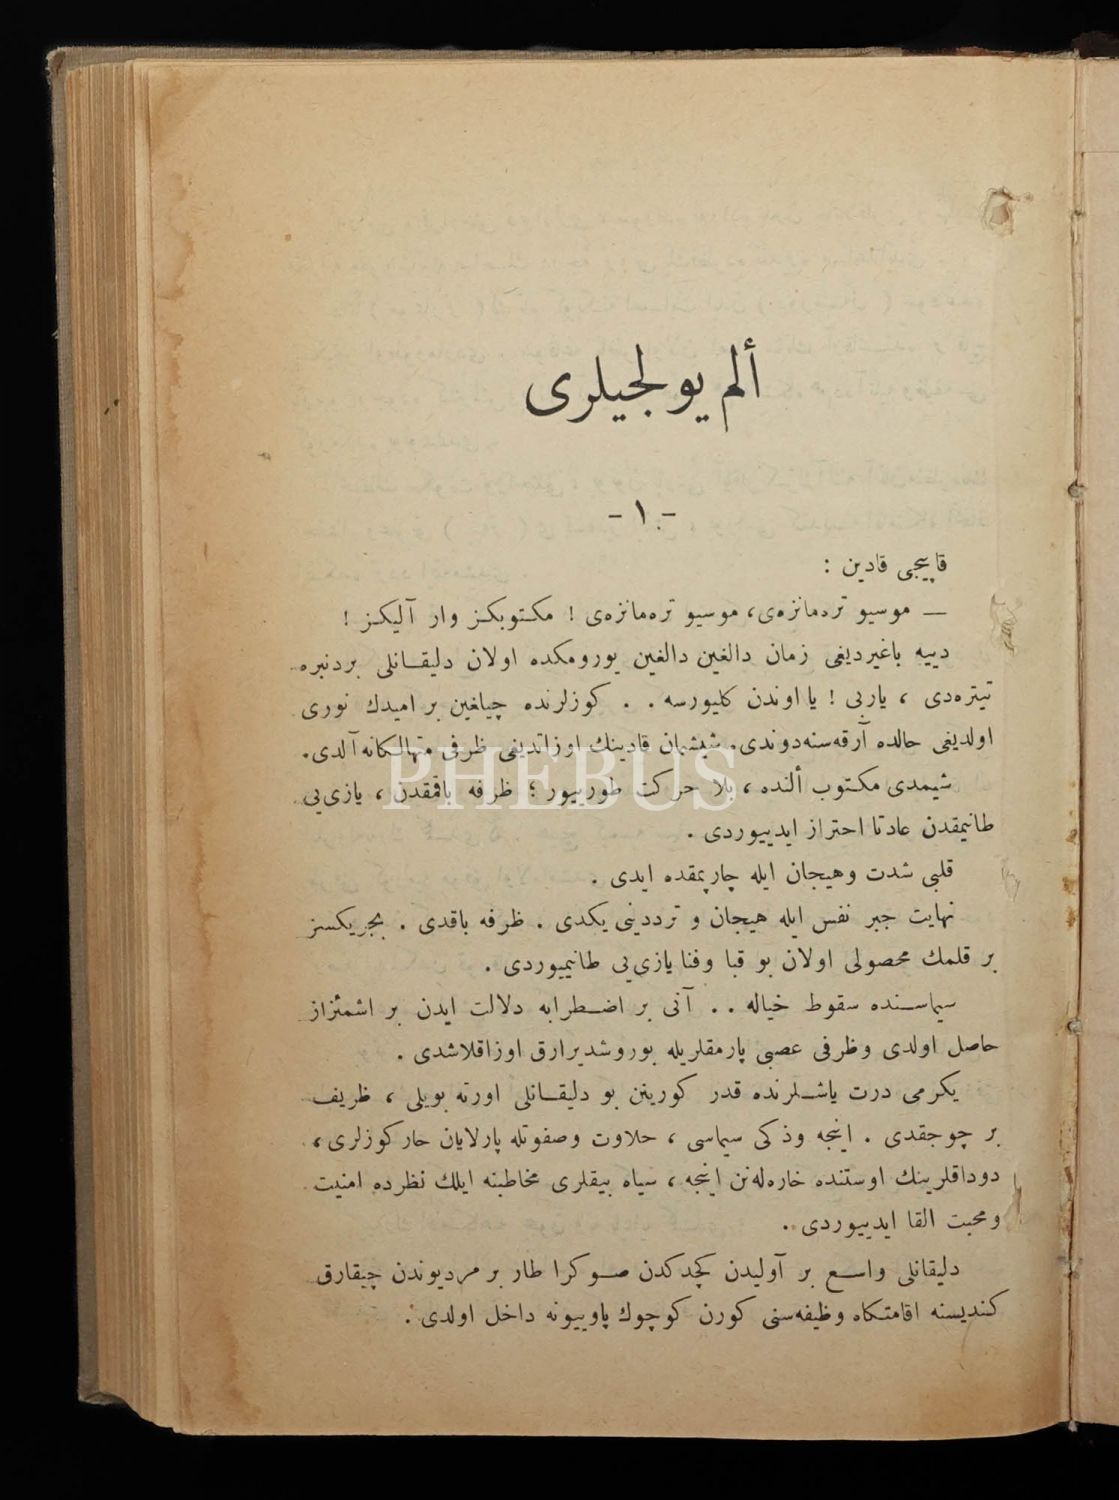 ألم يولجيلرى
- ١ -
قاپيجى قادين :
— موسيو تره‌مانزه‌ى، موسيو تره‌مانزه‌ى ! مكتوبكز وار آليكز !
دييه باغيرديغى زمان دالغين دالغين يورومكده اولان دليقانلى بردنبره
تيتره‌دى ، ياربى ! يا اوندن كليورسه . . كوزلرنده چيلغين بر اميدك نورى
اولديغى حالده آرقه‌سنه‌دوندى. شيشمان قادينك اوزاتديغى ظرفى متهالكانه آلدى.
شيمدى مكتوب ألنده ، بلا حركت طورييور ؛ ظرفه باقمقدن ، يازى‌يى
طانيمقدن عادتا احتراز ايدييوردى .
قلبى شدت وهيجان ايله چارپمقده ايدى .
نهايت جبر نفس ايله هيجان و ترددينى يكدى . ظرفه باقدى . بجريكسز
بر قلمك محصولى اولان بو قبا وفنا يازى‌يى طانيميوردى .
سيماسنده سقوط خياله . . آنى بر اضطرابه دلالت ايدن بر اشمئزاز
حاصل اولدى وظرفى عصبى پارمقلريله بوروشديرارق اوزاقلاشدى .
يكرمى درت ياشلرنده قدر كورينن بو دليقانلى اورته بويلى ، ظريف
بر چوجقدى . اينجه وذكى سيماسى ، حلاوت وصفوتله پارلايان حار كوزلرى ،
دوداقلرينك اوستنده خاره‌له‌نن اينجه ، سياه بيقلرى مخاطبنه ايلك نظرده امنيت
ومحبت القا ايدييوردى .
دليقانلى واسع بر آوليدن كچدكدن صوكرا طار بر مرديوندن چيقارق
كنديسنه اقامتكاه وظيفه‌سنى كورن كوچوك پاوييونه داخل اولدى .
PHEBUS